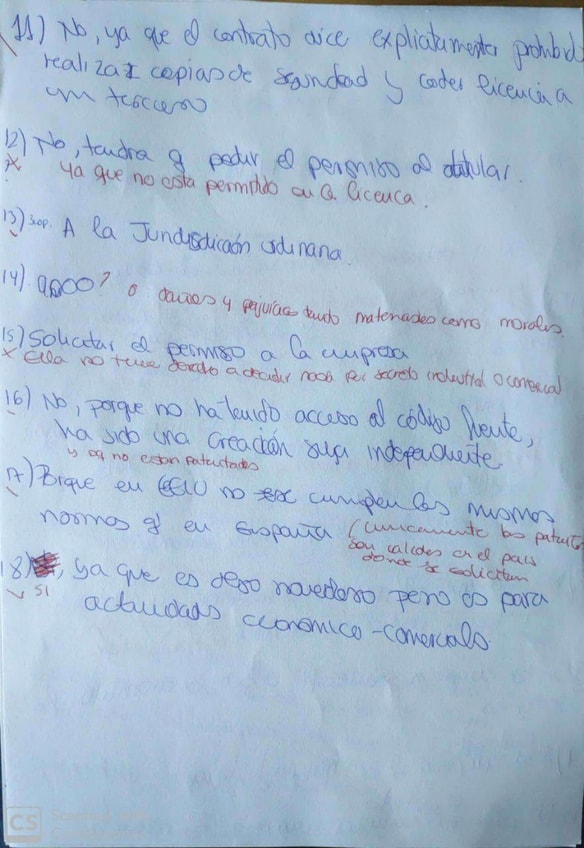 11) No, ya que el contrato dice explicitamente prohibido
realizar copias de seguridad y ceder licencia a
un tercero
12) No, tendra q pedir el permiso al titular.
x ya que no esta permitido en la licencia.
13) sop. A la Jurisdicción ordinaria.
14) 9000? o daños y perjuicios tanto materiales como morales.
15) Solicitar el permiso a la empresa
x Ella no tiene derecho a decidir nada por secreto industrial o comercial
16) No, porque no ha tenido acceso al código fuente,
ha sido una creación suya independiente
y aq no estan patentados
17) Porque en EEUU no cumplen las mismas
normas q en España (unicamente las patentes
son validas en el pais
donde se solicitan
18) , ya que es algo novedoso pero es para
SI
actividades económico-comerciales.
CS
Scanned with